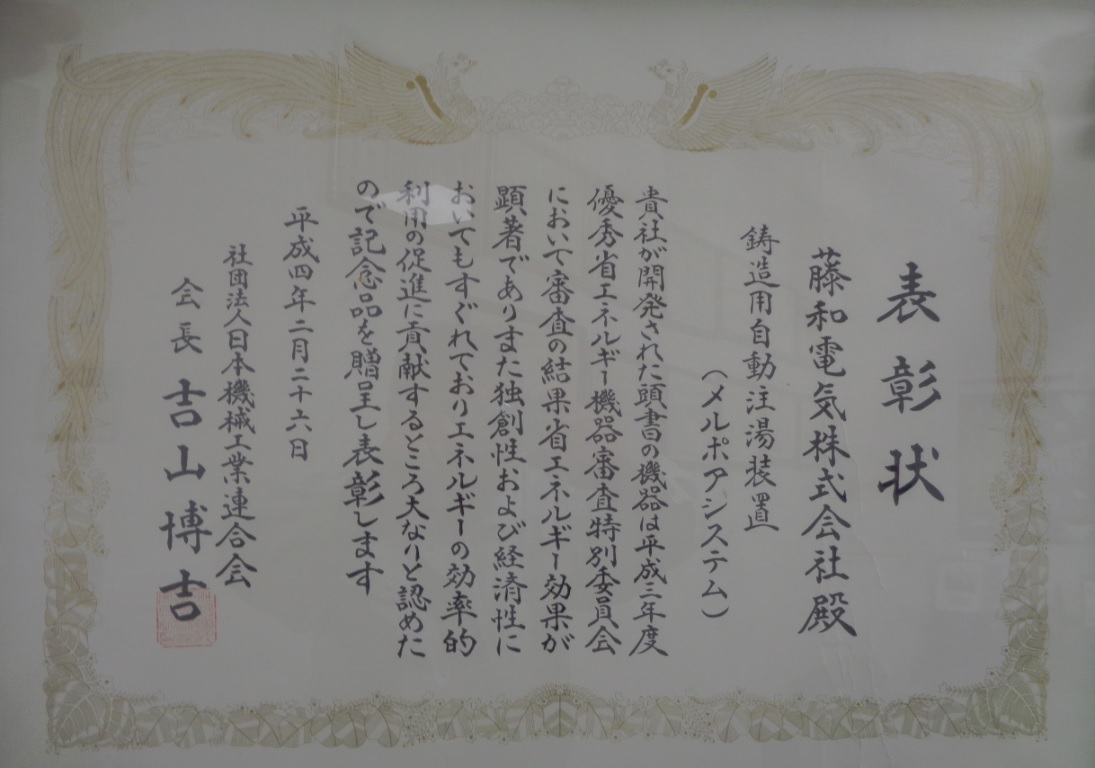 表彰状
藤和電気株式会社殿
鋳造用自動注湯装置
（メルポアシステム）
貴社が開発された頭書の機器は平成三年度
優秀省エネルギー機器審査特別委員会
において審査の結果省エネルギー効果が
顕著でありまた独創性および経済性に
おいてもすぐれておりエネルギーの効率的
利用の促進に貢献するところ大なりと認めた
ので記念品を贈呈し表彰します
平成四年二月二十六日
社団法人日本機械工業連合会
会長 吉山博吉